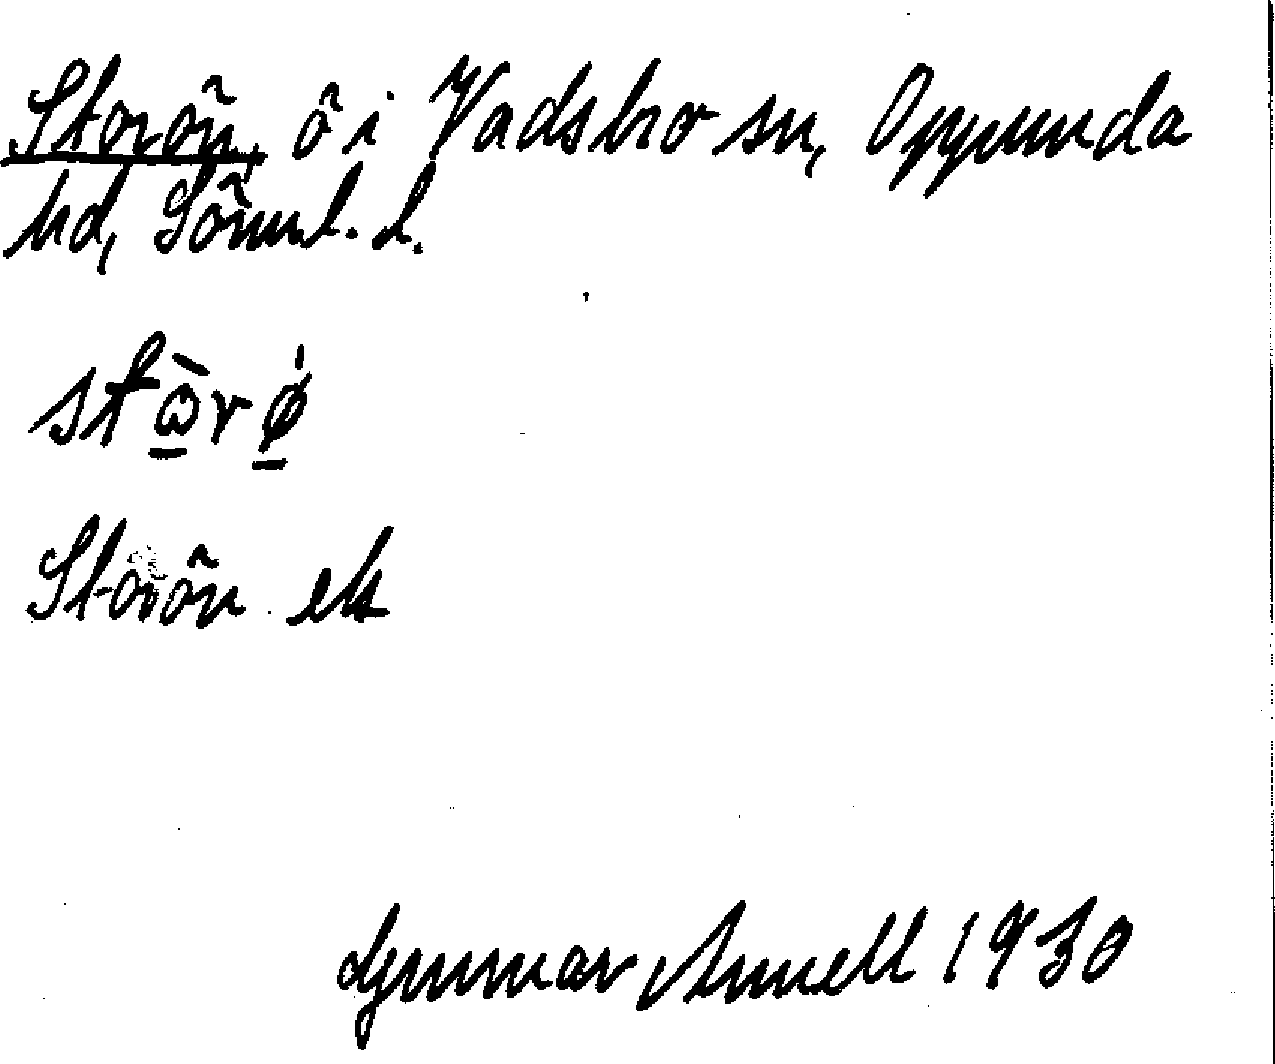 Storön, ö i Vadsbro sn, Oppunda
hd, Sörml. l.
stὼ̱rø̱̇
Storön ek
Gunnar Annell 1930